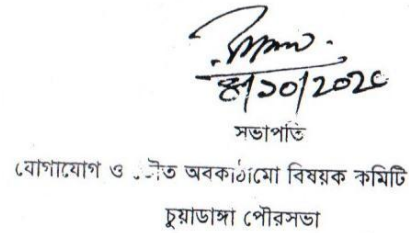 ২০/২০২৫
সভাপতি
যোগাযোগ ও ভৌত অবকাঠামো বিষয়ক কমিটি
চুয়াডাঙ্গা পৌরসভা